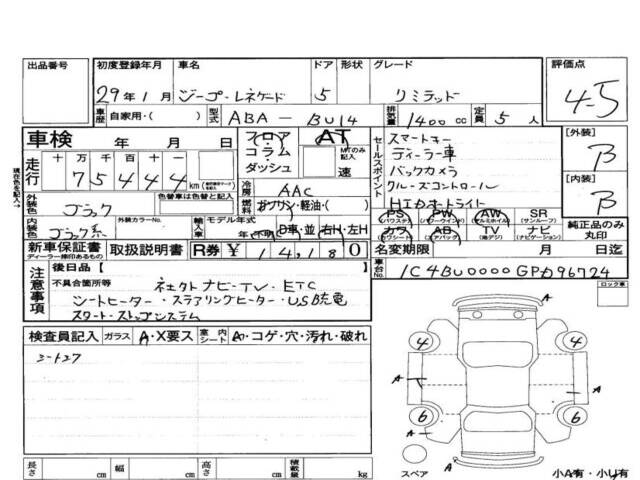 出品番号
初度登録年月 車名 ドア 形状 グレード 評価点
29年1月 ジープ・レネゲード 5 リミテッド 4.5
車歴 自家用・( ) 型式 ABA - BU14 排気量 1400cc 定員 5人
車検 年 月 日
フロア・コラム・ダッシュ AT MTのみ記入 速
現在色を記入→
走行 十万千百十 75444 km
冷房 AAC
外装色 ブラック 色替車は色替と記入
燃料 ガソリン・軽油・( )
内装色 ブラック系 外装カラーNo.
輸入車 モデル年式 年・不明 D車・並 右H・左H
セールスポイント
スマートキー
ディーラー車
バックカメラ
クルーズコントロール
HIDオートライト
PS (パワステ) PW (パワーウインドウ) AW (アルミホイール) SR (サンルーフ)
カワ (カワシート) AB (エアバック) TV (地デジ) ナビ (ナビゲーション)
[外装] B
[内装] B
純正品のみ丸印
新車保証書 ディーラー捺印あるもの 取扱説明書 R券 ¥ 14180
名変期限 月 日迄
車台No. 1C4BU0000GPD96724
注意事項
後日品 [ ]
不具合箇所等 ネェクトナビ・TV・ETC
シートヒーター・ステアリングヒーター・USB充電
スタート・ストップシステム
ロック車
検査員記入 ガラス A・X要ス 室内シート A・コゲ・穴・汚れ・破れ
シートスレ
4 4
A A
6 6
A
A
スペア
小A有・小U有
長さ cm 幅 cm 高さ cm 積載量 kg